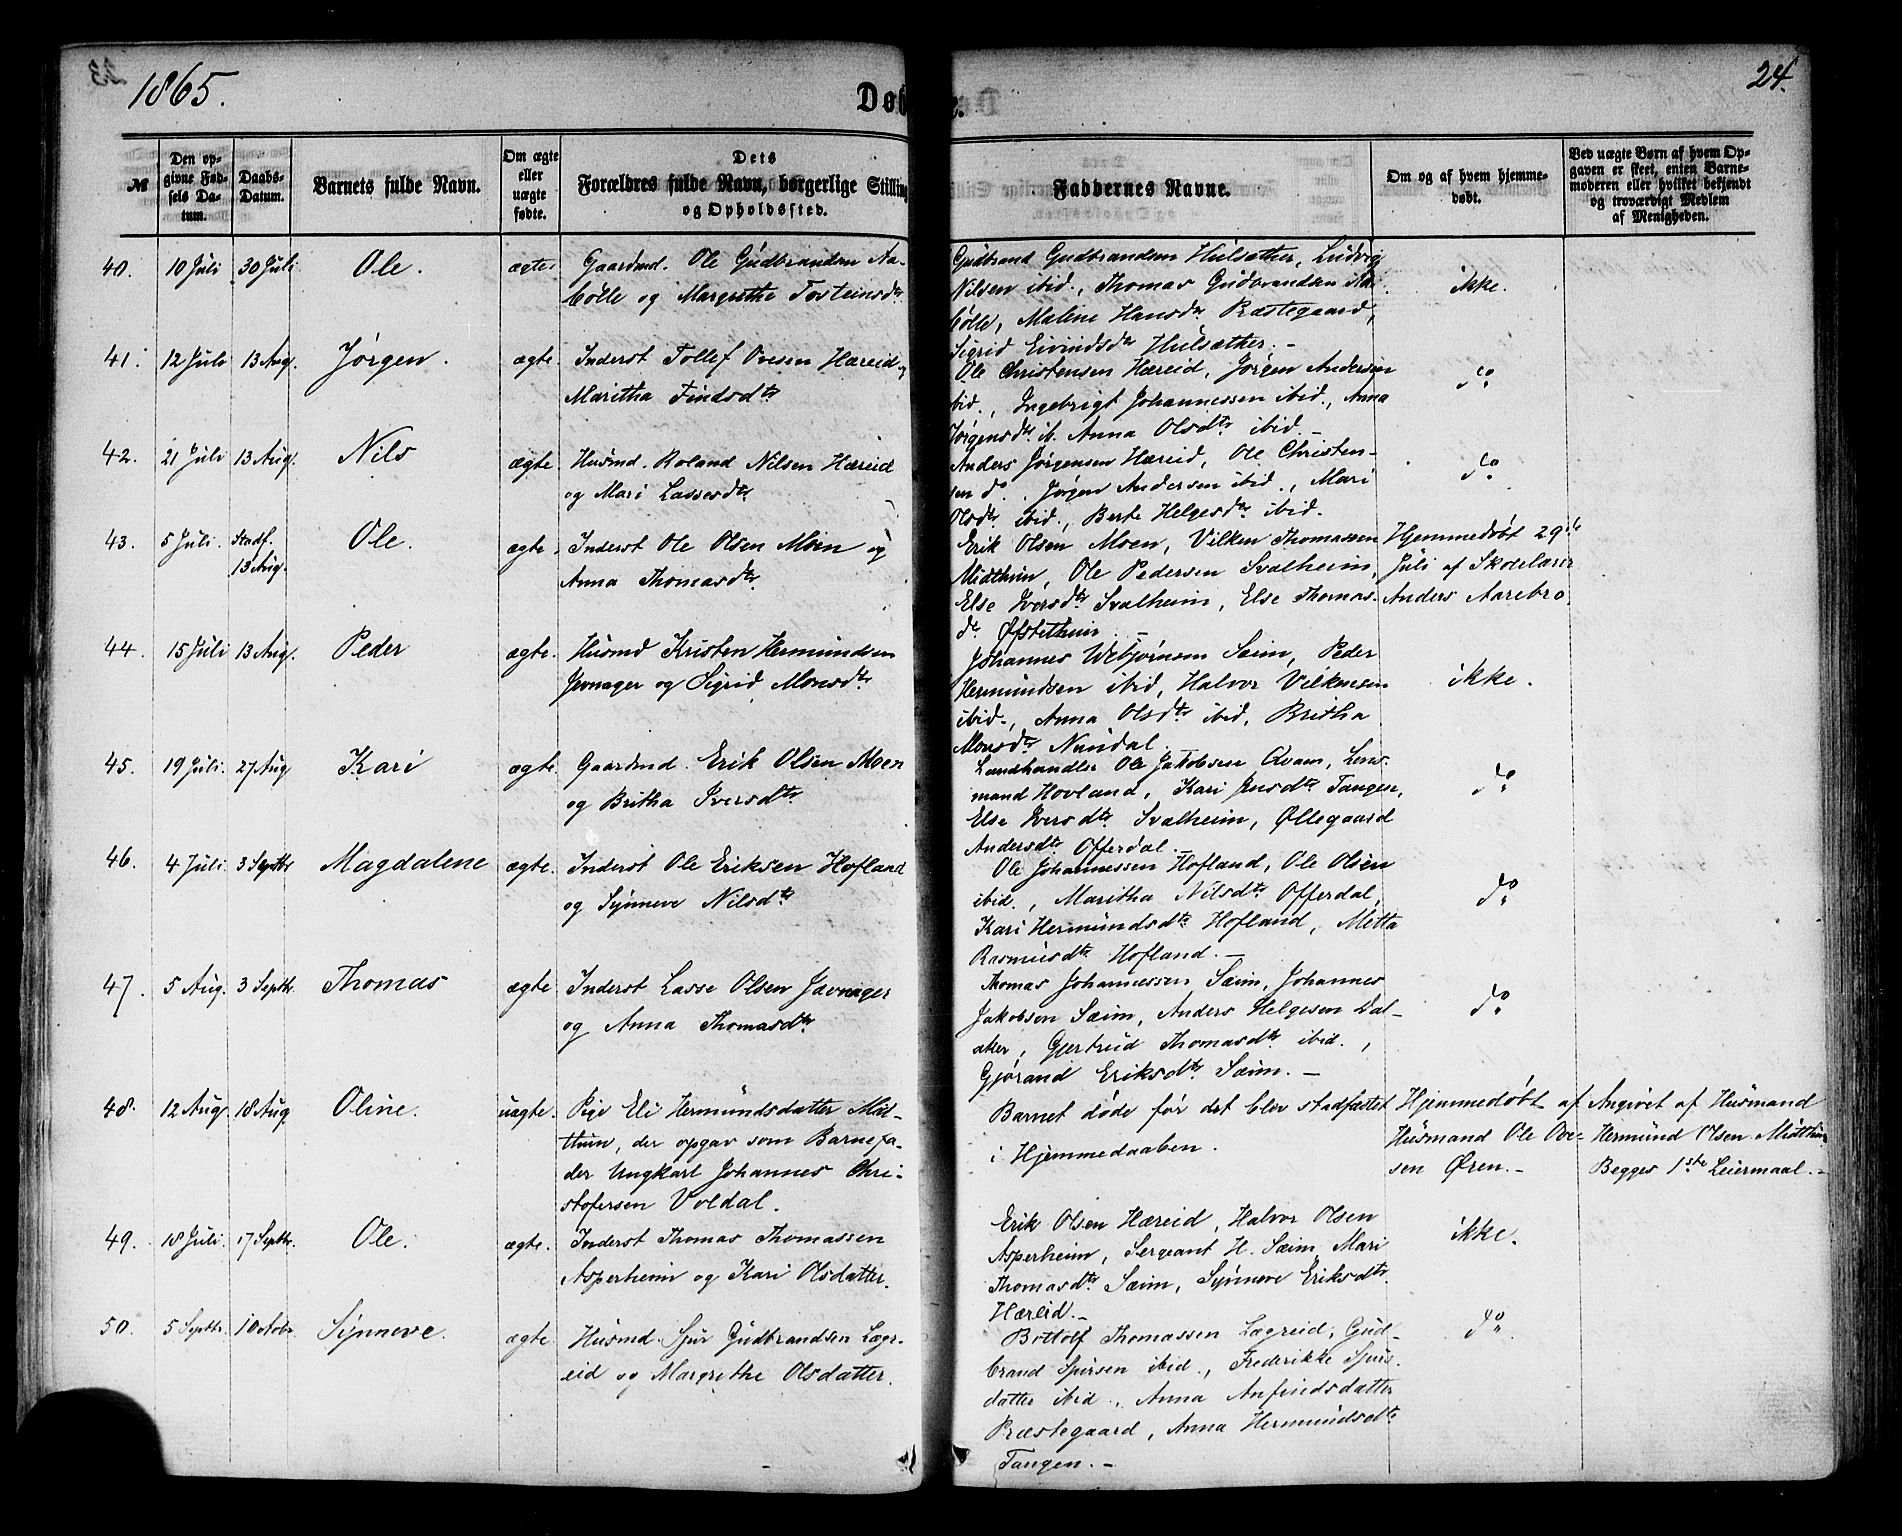 1865.
Døbte.
24.
№
Den op-
givne Fød-
sels Da-
tum.
Daabs-
Datum.
Barnets fulde Navn.
Om ægte
eller
uægte
fødte.
Dets
Forældres fulde Navn, borgerlige Stilling
og Opholdssted.
Faddernes Navne.
Om og af hvem hjemme-
døbt.
Ved uægte Børn af hvem Op-
gaven er skeet, enten Barne-
moderen eller hvilket bekjendt
og troværdigt Medlem
af Menigheden.
40. 10 Juli 30 Juli Ole. ægte
Gaardmd. Ole Gudbrandsn Na-
bölle og Margrethe Tosteinsdtr
Gudbrand Gudbrandsen Hulsæther, Ludvig
Nilsen ibid., Thomas Gudbrandsen Na-
bölle, Malene Hansdtr Præstegaard,
Sigrid Eivindsdtr Hulsæther. –
ikke.
41. 12 Juli 13 Aug. Jørgen. ægte.
Inderst Tollef Ovesen Hæreid og
Maritha Findsdtr
Ole Christensen Hæreid, Jørgen Andersen
ibid., Ingebrigt Johannessen ibid., Anna
Jørgensdtr ib. Anna Olsdtr ibid. –
do
42. 21 Juli 13 Aug. Nils ægte
Husmd. Roland Nilsen Hæreid
og Mari Lassesdtr
Anders Jørgensen Hæreid, Ole Christen-
sen do. Jørgen Andersen ibid., Mari
Olsdtr ibid., Berte Helgesdtr ibid.
do
43. 5 Juli. Stadf.
13 Aug. Ole. ægte.
Inderst Ole Olsen Moen og
Anna Thomasdtr
Erik Olsen Moen, Vilken Thomassen
Midthun, Ole Pedersen Svalheim,
Else Iversdtr Svalheim, Else Thomas-
dtr Øfstethun. –
Hjemmedøbt 29de
Juli af Skolelærer
Anders Aarebro.
44. 15 Juli 13 Aug. Peder ægte.
Husmd Kristen Hermundsen
Jevnager og Sigrid Monsdtr
Johannes Webjørnsen Sæim, Peder
Hermundsen ibid, Halvor Vilkensen
ibid., Anna Olsdtr ibid, Britha
Monsdtr Nundal.
ikke.
45. 19 Juli. 27 Aug Kari ægte
Gaardmd. Erik Olsen Moen
og Britha Iversdtr
Landhandler Ole Jakobsen Qvam, Lens-
mand Hovland, Kari Jensdtr Tangen,
Else Iversdtr Svalheim, Øllegaard
Andersdtr Offerdal. –
do
46. 4 Juli. 3 Septbr Magdalene ægte.
Inderst Ole Eriksen Hofland
og Synneve Nilsdtr
Ole Johannessen Hofland, Ole Olsen
ibid., Maritha Nilsdtr Offerdal,
Kari Hermundsdtr Hofland, Metta
Rasmusdtr Hofland. –
do
47. 5 Aug. 3 Septbr. Thomas ægte
Inderst Lasse Olsen Jævnager
og Anna Thomasdtr
Thomas Johannessen Sæim, Johannes
Jakobsen Sæim, Anders Helgesen Dal-
aker, Gjertrud Thomasdtr ibid.,
Gjørand Eriksdtr Sæim. –
do
48. 12 Aug. 18 Aug Oline. uægte.
Pige Eli Hermundsdatter Mid-
thun, der opgav som Barnefa-
der Ungkarl Johannes Chri-
stofersen Voldal.
Barnet døde før det blev stadfæstet
i Hjemmedaaben.
Hjemmedøbt af
Husmand Ole Ove-
sen Øren. –
Angivet af Husmand
Hermund Olsen Midthun
Begges 1ste Leiermaal. –
49. 18 Juli. 17 Septbr. Ole. ægte.
Inderst Thomas Thomassen
Asperheim og Kari Olsdatter.
Erik Olsen Hæreid, Halvor Olsen
Asperheim, Sergeant H. Sæim, Mari
Thomasdtr Sæim, Synneve Eriksdtr
Hæreid. –
ikke.
50. 5 Septbr. Synneve. ægte
Husmd. Sjur Gudbrandsen Lægr-
eid og Margrethe Olsdatter.
Bottolf Thomassen Lægreid, Gud-
brand Sjursen ibid., Frederikke Sjurs-
datter ibid., Anna Anfindsdatter
Præstegaard, Anna Hermundsdtr
Tangen. –
do